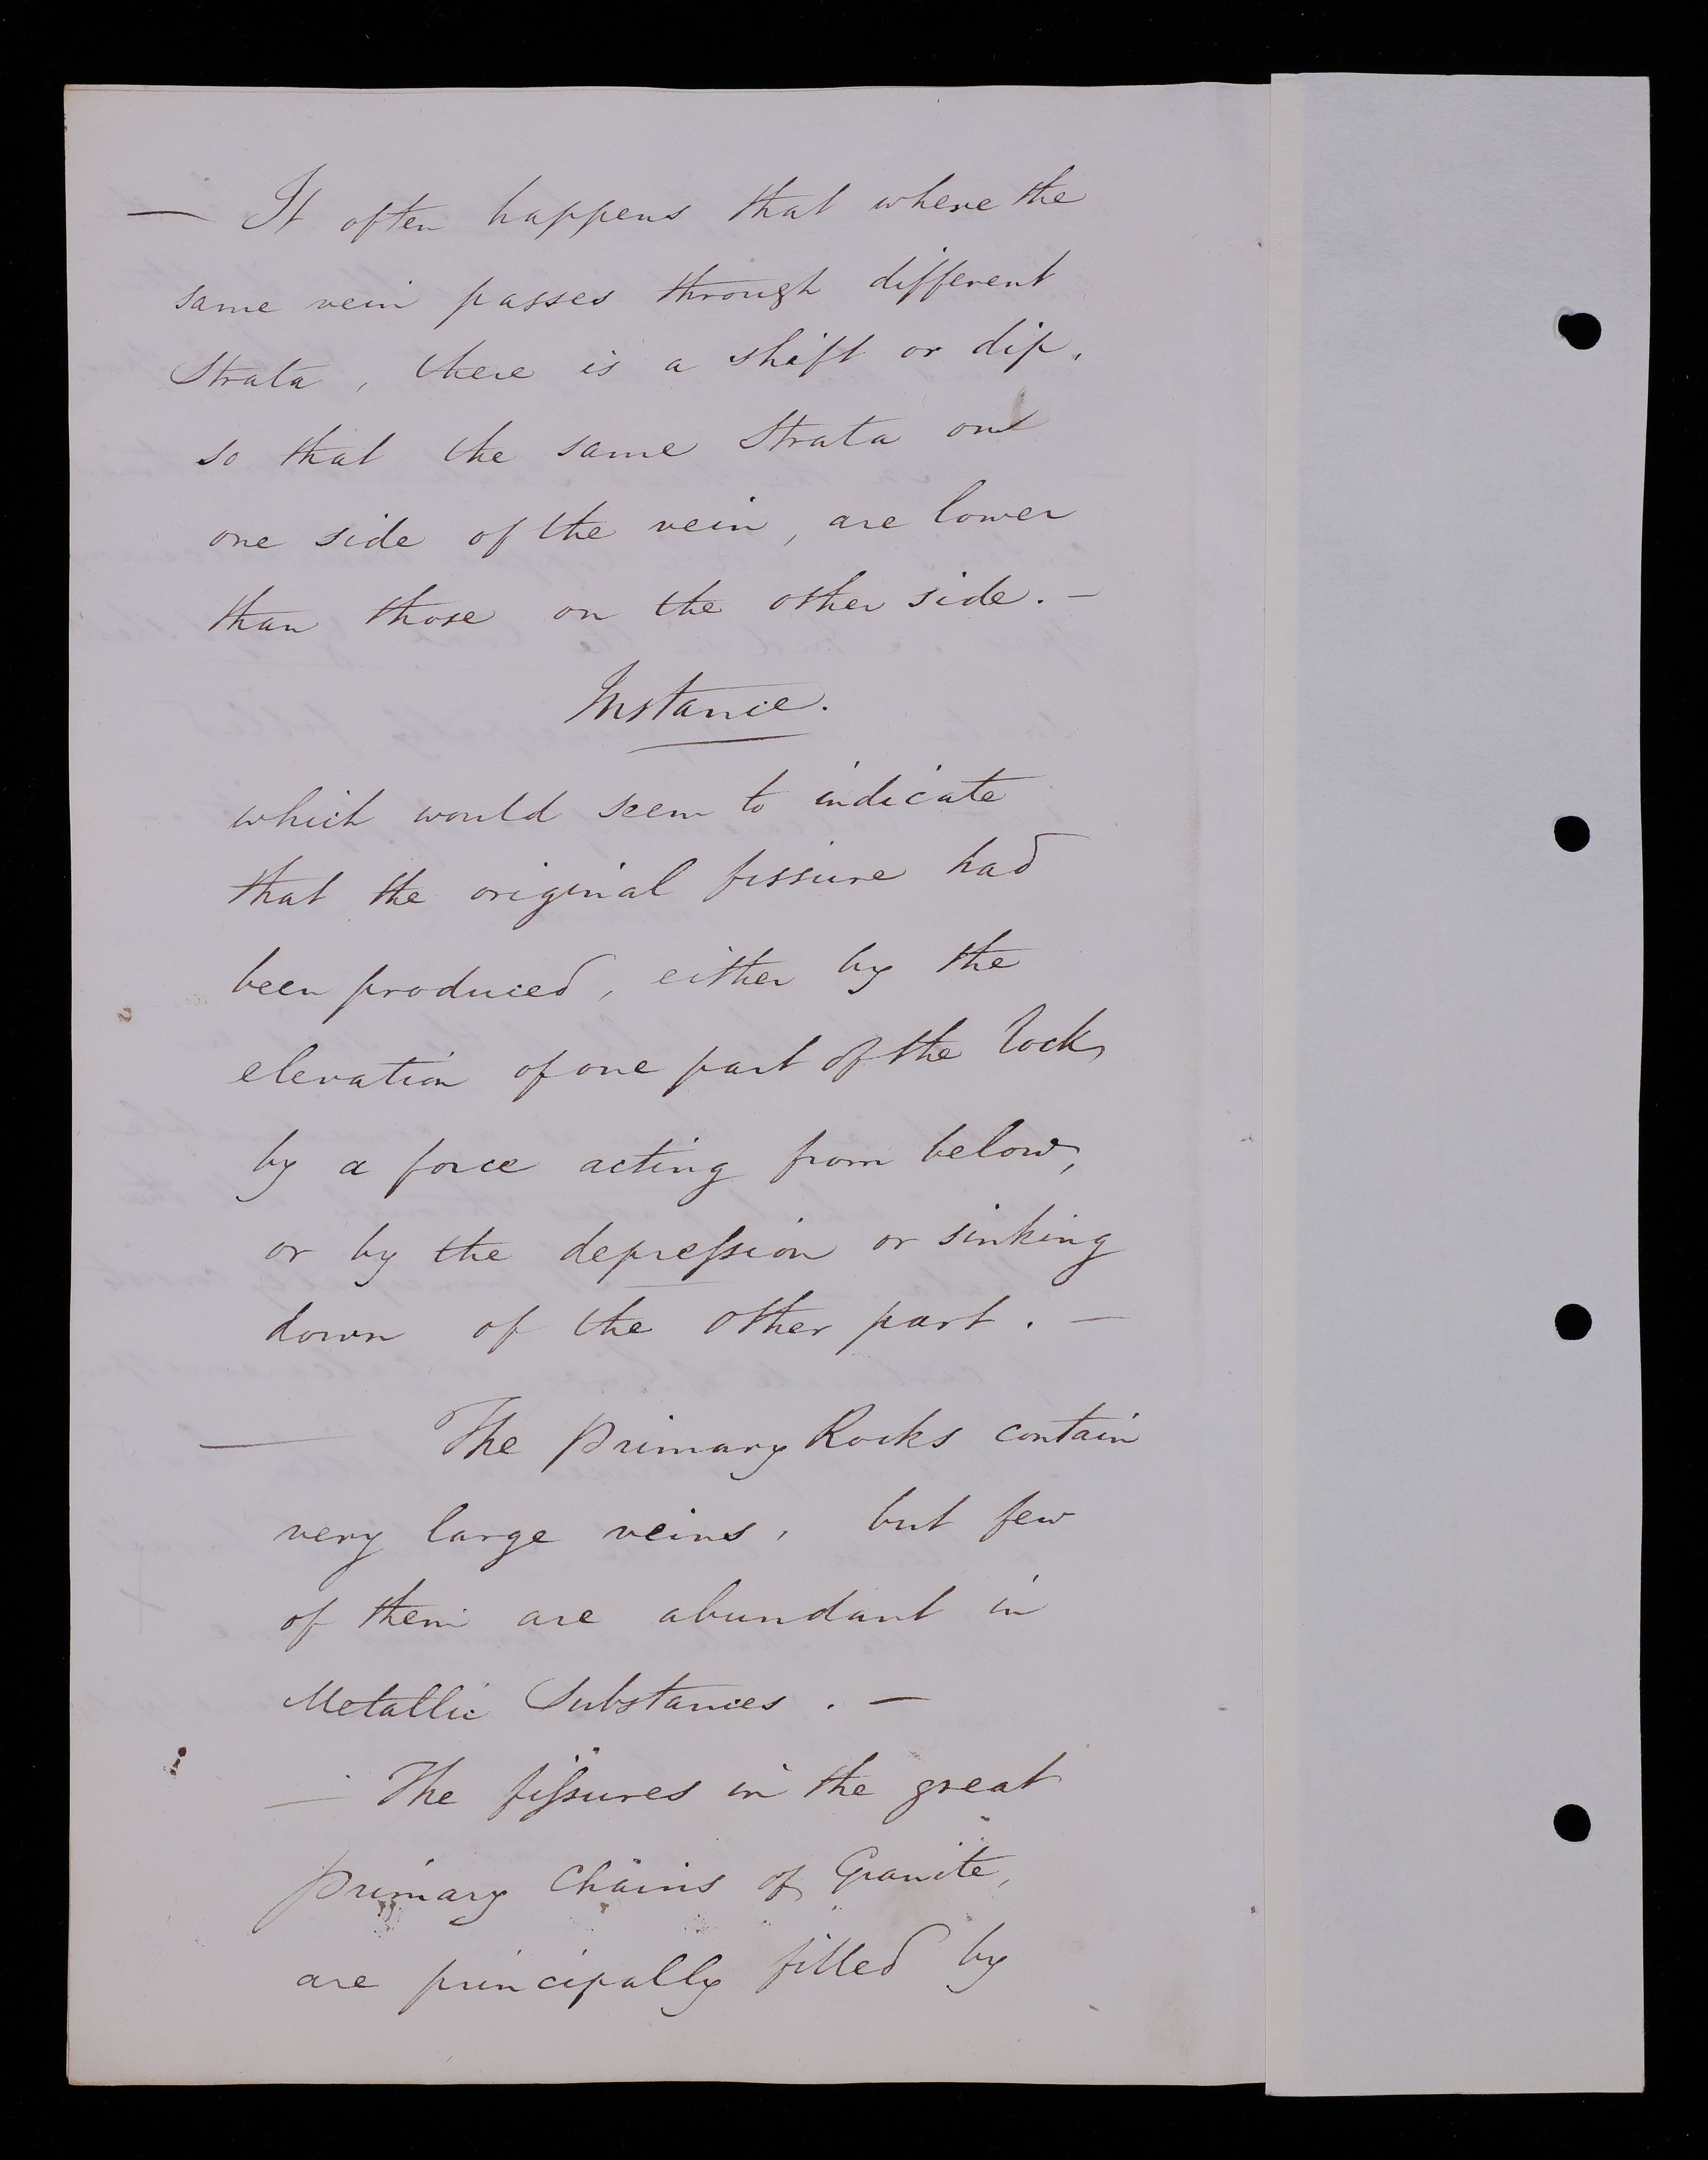 — It often happens that where the
same vein passes through different
Strata, there is a shift or dip,
so that the same Strata on
one side of the vein, are lower
than those on the other side. —
Instance.
which would seem to indicate
that the original fissure had
been produced, either by the
elevation of one part of the rock,
by a force acting from below,
or by the depression or sinking
down of the other part. —
— The Primary Rocks contain
very large veins, but few
of them are abundant in
Metallic Substances. —
— The fissures in the great
Primary Chains of Granite,
are principally filled by